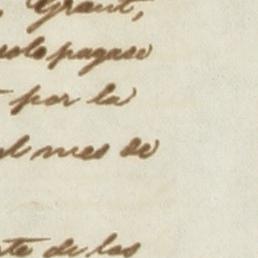 Grant,
solo pagase
por la
el mes de
te de las